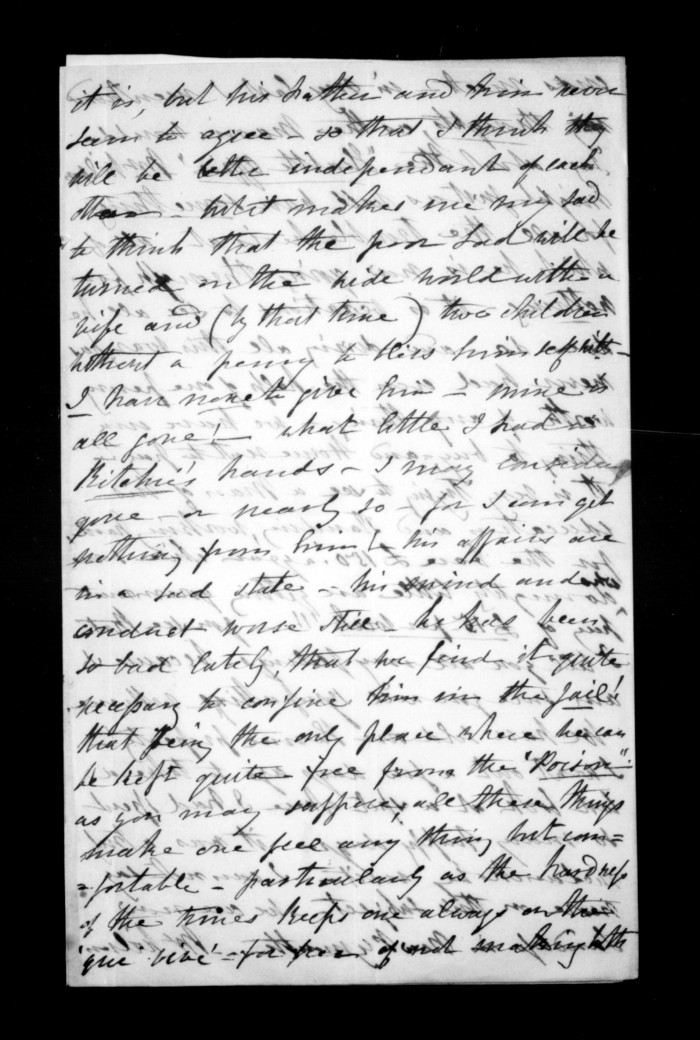 it is, but his Father and him never
seem to agree - so that, I think they
will be better independant of each
other - but it makes me very sad
to think that the poor lad will be
turned on the wide world with a
wife and (by that time) two children
without a penny to bless himself with -
I have none to give him - mine is
all gone! - what little I had in
Ritchie's hands - I may consider
gone - or nearly so - for I can get
nothing from him! his affairs are
in a sad state - his mind and
conduct worse still - he has been
so bad lately, that we find it quite
necessary to confine him in the Jail!
that being the only place where he can
be kept quite free from the "Poison"!
as you may suppose, all these things
make one feel any thing but com=
=fortable - particularly as the hardness
of the times keeps one always on the
'qui vive' - for fear of not making both